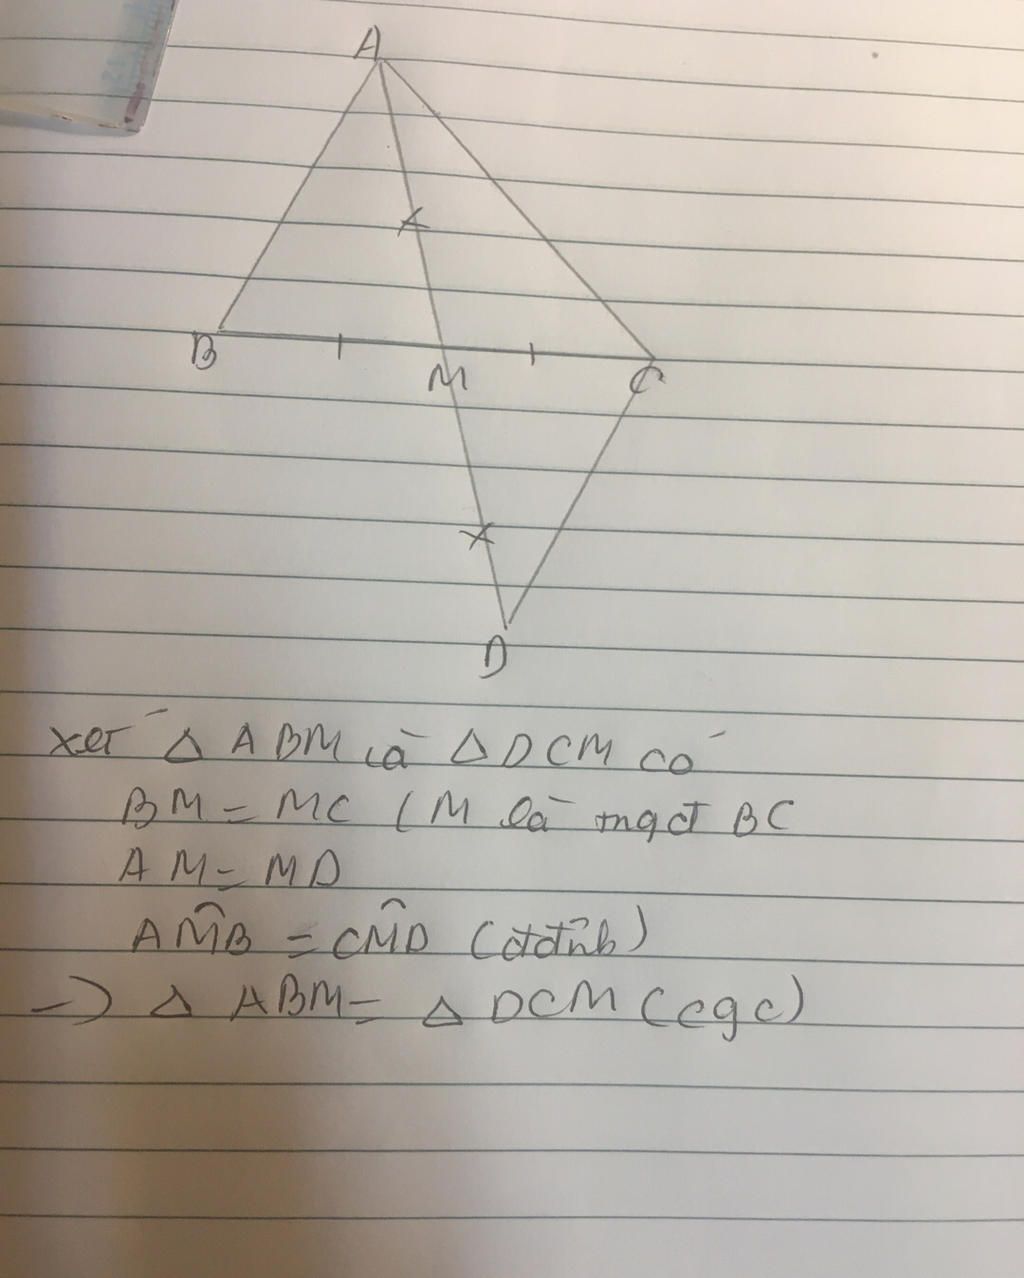 A
B
M
C
D
xét △ ABM và △ DCM có
BM = MC ( M là
BC
AM = MD
AM̂B = CM̂D (đđỉnh)
→ △ ABM = △ DCM (cgc)